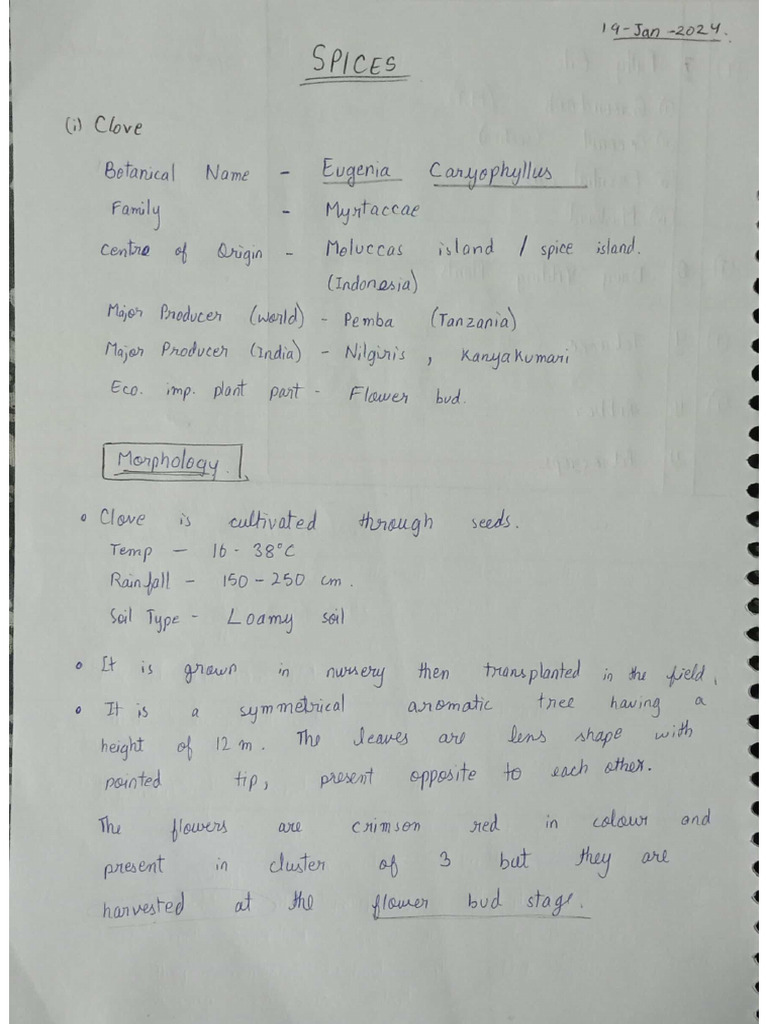 19-Jan-2024.
SPICES
(i) Clove
Botanical Name - Eugenia Caryophyllus
Family - Myrtaccae
Centre of Origin - Moluccas island / spice island.
(Indonesia)
Major Producer (World) - Pemba (Tanzania)
Major Producer (India) - Nilgiris, Kanyakumari
Eco. imp. plant part - Flower bud.
Morphology.
• Clove is cultivated through seeds.
Temp - 16 - 38°C
Rainfall - 150 - 250 cm.
Soil Type - Loamy soil
• It is grown in nursery then transplanted in the field.
• It is a symmetrical aromatic tree having a
height of 12 m. The leaves are lens shape with
pointed tip, present opposite to each other.
The flowers are crimson red in colour and
present in cluster of 3 but they are
harvested at the flower bud stage.